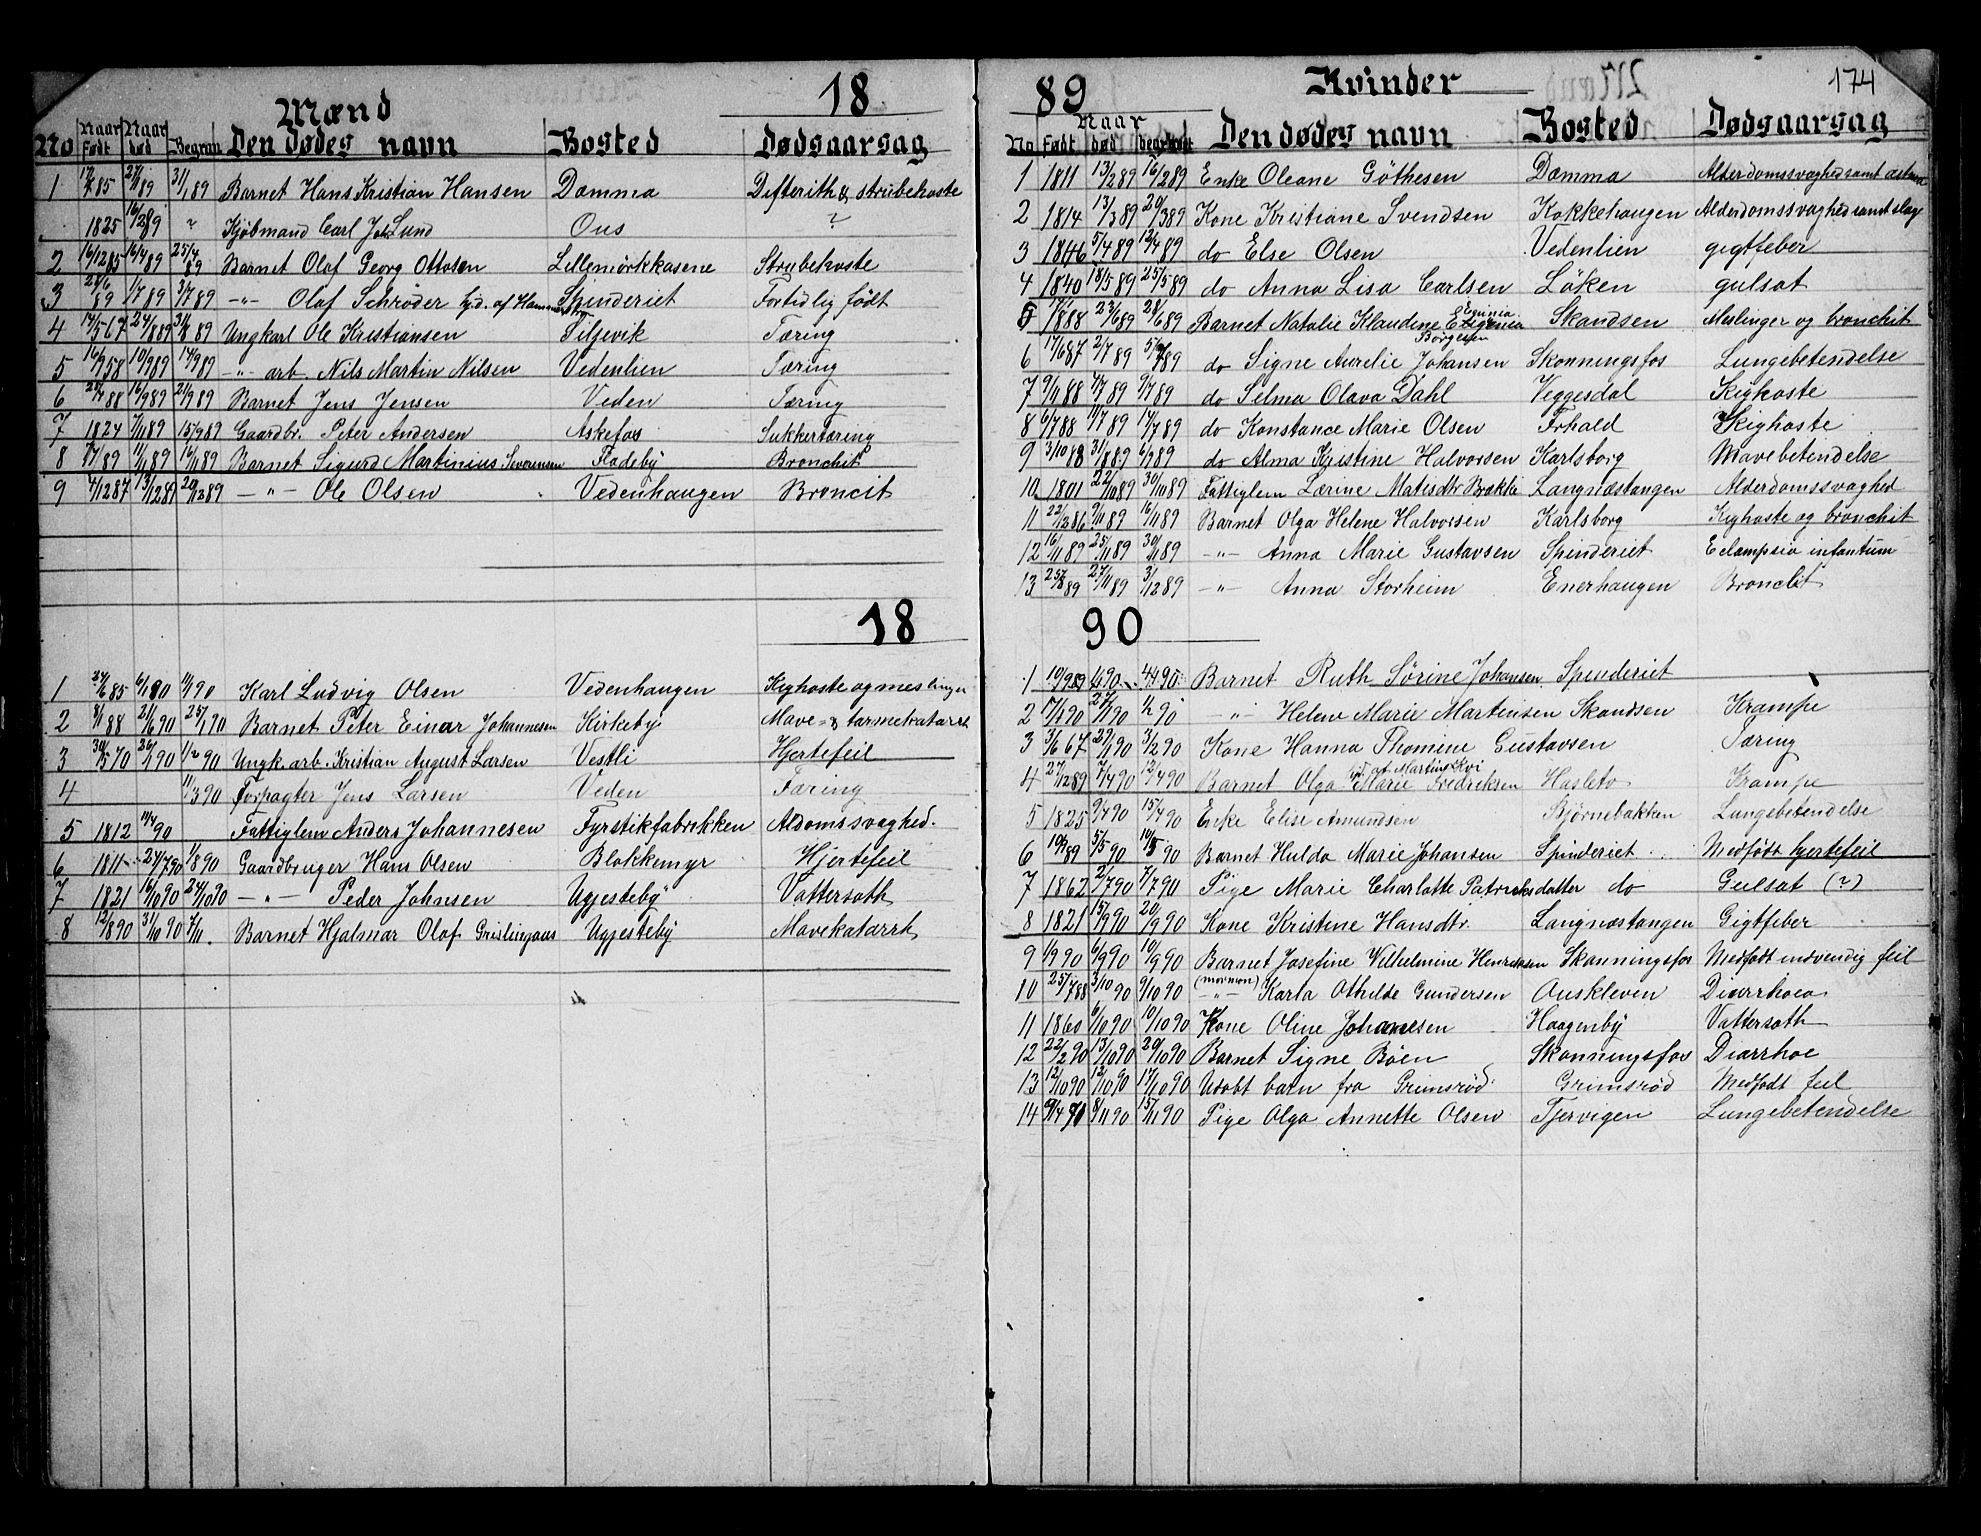 Mænd 18
No Naar født Naar død Begrav Den dødes navn Bosted Dødsaarsag
1 17/7 85 27/1 89 31/1 89 Barnet Hans Kristian Hansen Damma Difterith & strubehoste
1825 16/2 89 ? Kjøbmand Carl Joh. Lund Ous ?
2 16/12 85 16/4 89 25/4 89 Barnet Olaf Georg Ottosen Lillemörkkasene Strubehoste
3 28/6 89 1/7 89 3/7 89 -"- Olaf Schrøder Spinderiet Fortidlig født
4 14/5 67 27/8 89 31/8 89 Ungkarl Ole Kristiansen Filjevik Tæring
5 16/9 58 10/9 89 14/9 89 -"- arb. Nils Martin Nilsen Vedenlien Tæring
6 88 16/9 89 21/9 89 Barnet Jens Jensen Veden Tæring
7 1824 7/11 89 15/9 89 Gaardbr. Peter Andersen Askefos Sukkertæring
8 89 11/11 89 16/11 89 Barnet Sigurd Martinius Severinsen Fladeby Bronchit
9 4/12 87 13/12 89 20/12 89 -"- Ole Olsen Vedenhaugen Broncit
18
1 85 6/1 90 11/1 90 Karl Ludvig Olsen Vedenhaugen Kighoste og meslinger
2 8/1 88 21/1 90 25/1 90 Barnet Peter Einar Johannesen Kirkeby Mave- & tarmekatarrh
3 30/5 70 26/1 90 1/2 90 Ungk. arb. Kristian August Larsen Vestli Hjertefeil
4 11/3 90 Forpagter Jens Larsen Veden Tæring
5 1812 11/4 90 Fattiglem Anders Johannesen Fyrstikfabrikken Aldomssvaghed.
6 1811 27/7 90 1/8 90 Gaardbruger Hans Olsen Blakkemyr Hjertefeil
7 1821 16/10 90 24/10 90 -"- Peder Johnsen Ugjesteby Vattersoth
8 12/8 90 31/10 90 7/11. Barnet Hjalmar Olaf Grislingaas Ugjesteby Mavekatarrh
89 Kvinder 174
No Naar født død begravet Den dødes navn Bosted Dødsaarsag
1 1811 13/2 89 16/2 89 Enke Oleane Göthesen Damma Alderdomssvaghed samt astma
2 1814 13/3 89 20/3 89 Kone Kristiane Svendsen Kokkehaugen Alderdomssvaghed samt slag
3 1846 5/4 89 12/4 89 do Else Olsen Vedenlien gigtfeber
4 1840 18/5 89 25/5 89 do Anna Lisa Carlsen Löken gulsot
5 88 22/6 89 28/6 89 Barnet Natalie Klaudine Eugenia Borgesen Skandsen Meslinger og bronchit
6 17/6 87 2/7 89 5/7 89 do Signe Aurelie Johansen Skonningsfos Lungebetendelse
7 9/11 88 4/7 89 9/7 89 do Selma Olava Dahl Veggesdal Kighoste
8 6/7 88 11/7 89 17/7 89 do Konstance Marie Olsen Forhald Kighoste
9 3/10 88 31/8 89 6/9 89 do Alma Kristine Halvorsen Karlsborg Mavebetendelse
10 1801 22/10 89 30/10 89 Fattiglem Lærine Matisdtr Brække Langnæstangen Alderdomssvaghed
11 22/12 86 9/11 89 16/11 89 Barnet Olga Helene Halvorsen Karlsborg Kighoste og bronchit
12 16/11 89 25/11 89 30/11 89 -"- Anna Marie Gustavsen Spinderiet Eclampsia infantum
13 25/8 89 27/11 89 3/12 89 -"- Anna Storheim Enerhaugen Bronchit
90
1 10/9 89 90 4/4 90 Barnet Ruth Sörine Johansen Spinderiet
2 90 27/1 90 1/2 90 -"- Helene Marie Martinsen Skandsen Krampe
3 3/6 67 29/1 90 3/2 90 Kone Hanna Thomine Gustavsen Tæring
4 27/12 89 2/4 90 12/4 90 Barnet Olga Marie Fredriksen Hasleto Krampe
5 1825 9/4 90 15/4 90 Enke Elise Amundsen Bjørnebakken Lungebetendelse
6 10/9 89 5/5 90 10/5 90 Barnet Hulda Marie Johansen Spinderiet Medfödt hjertefeil
7 1862 2/7 90 7/7 90 Pige Marie Charlotte Patricksdatter do Gulsot (?)
8 1821 15/9 90 20/9 90 Kone Kristine Hansdtr. Langnæstangen Gigtfeber
9 1/9 90 6/9 90 10/9 90 Barnet Josefine Wilhelmine Henriksen Skonningsfos Medfødt indvendig feil
10 25/7 88 3/10 90 9/10 90 -"- Karla Othilde Gundersen Auskleven Diarrhoea
11 1860 6/10 90 10/10 90 Kone Oline Johannesen Haagenby Vattersoth
12 22/2 90 13/10 90 20/10 90 Barnet Signe Böen Skonningsfos Diarrhoe
13 12/10 90 12/10 90 17/10 90 Udöbt barn fra Grimsröd Grimsröd Medfødt feil
14 9/4 71 8/11 90 15/11 90 Pige Olga Annette Olsen Tjervigen Lungebetendelse